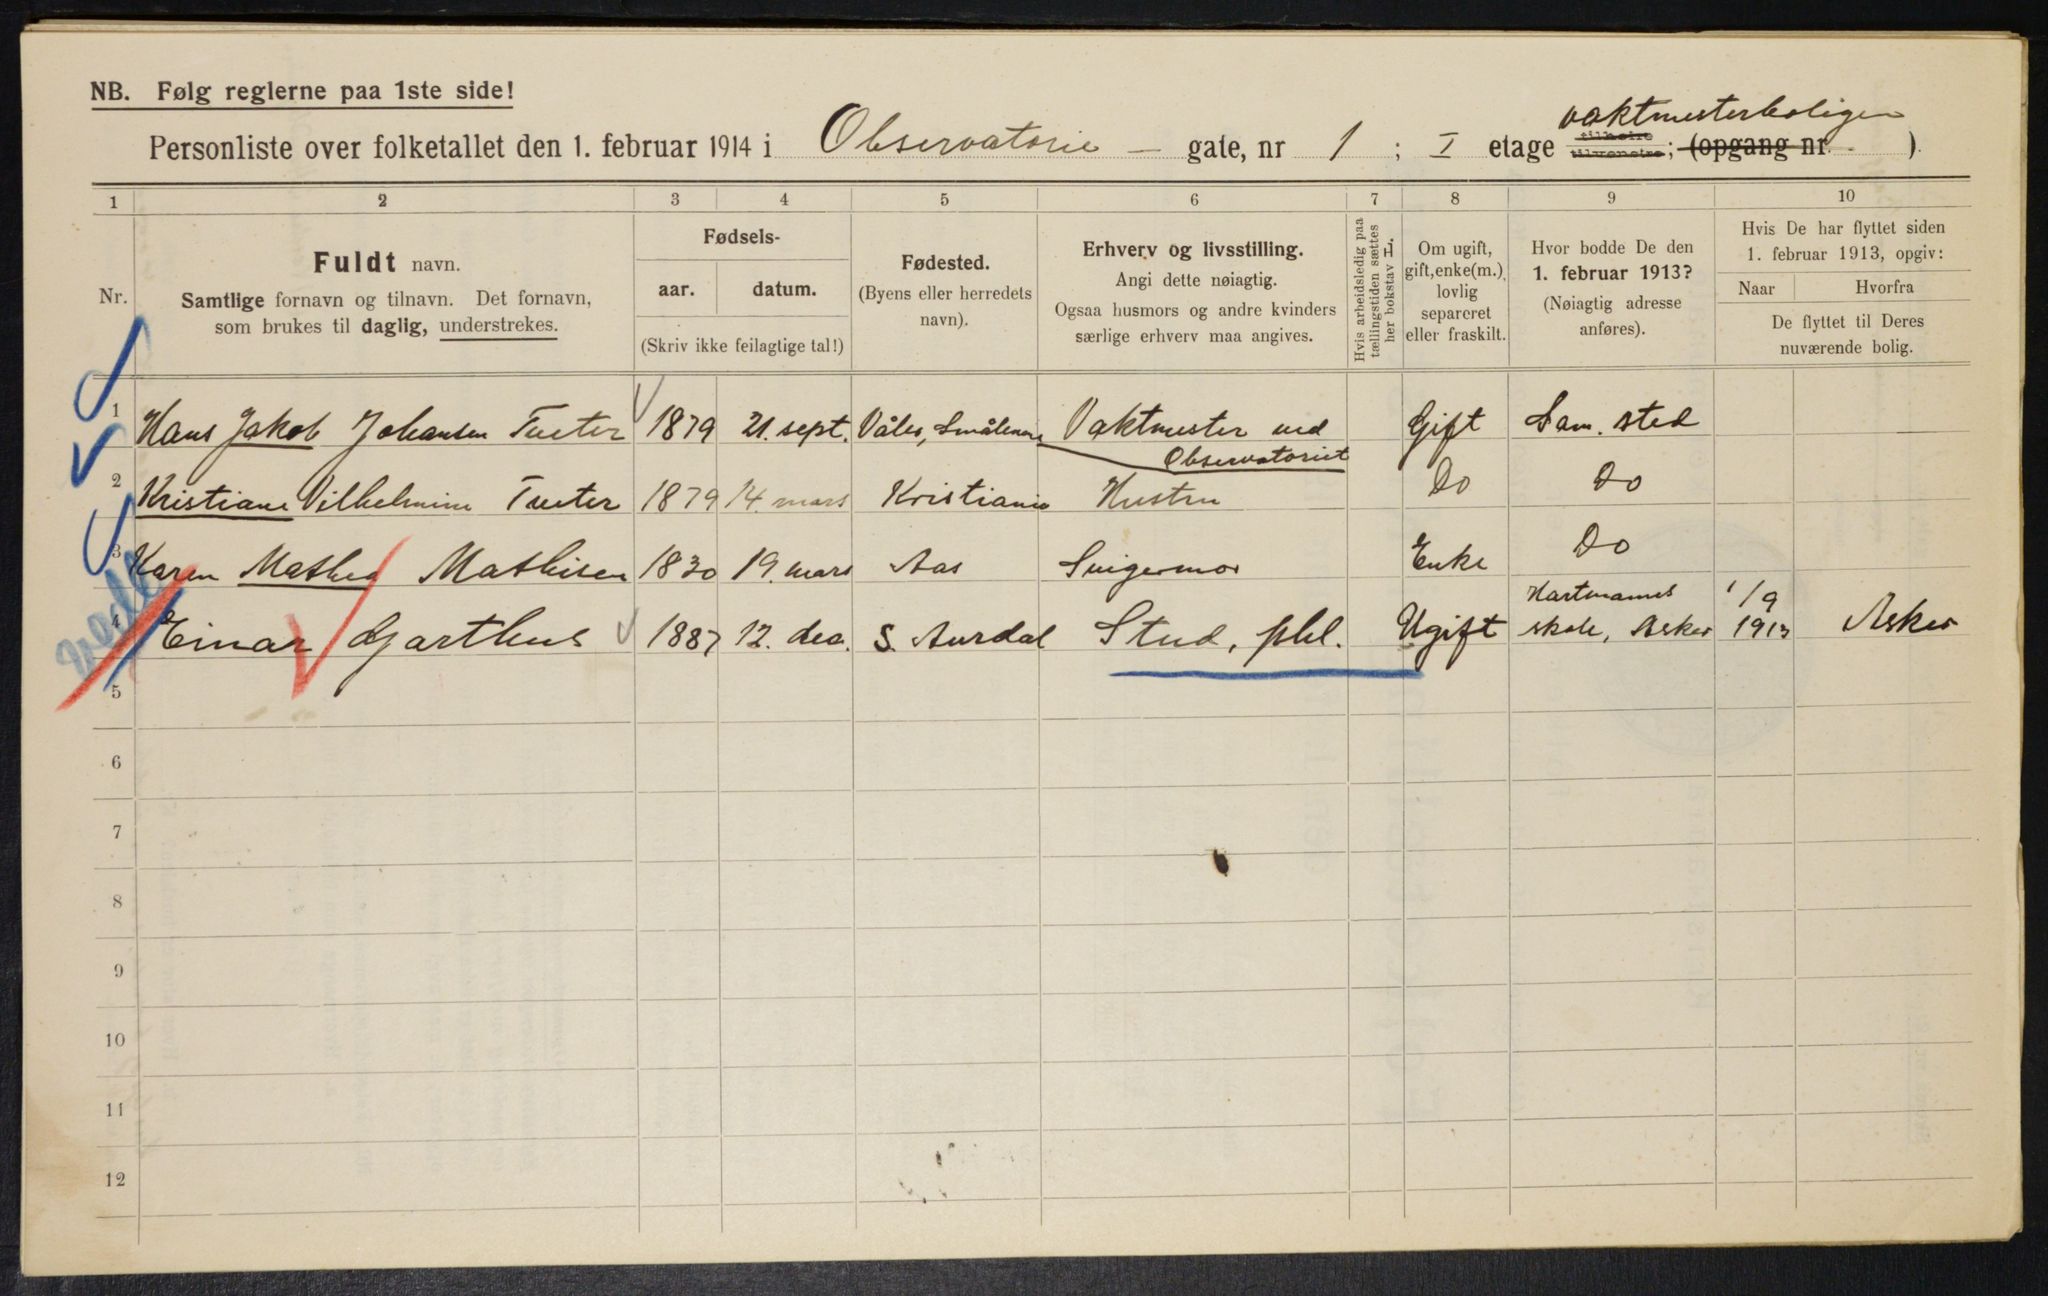 NB. Følg reglerne paa 1ste side!
vaktmesterboligen
Personliste over folketallet den 1. februar 1914 i Observatorie - gate, nr 1 ; I etage tilhøire tilvenstre; (opgang nr. ).
1 2 3 4 5 6 7 8 9 10
Nr.
Fuldt navn.
Samtlige fornavn og tilnavn. Det fornavn,
som brukes til daglig, understrekes.
Fødsels-
aar. datum.
(Skriv ikke feilagtige tal!)
Fødested.
(Byens eller herredets
navn).
Erhverv og livsstilling.
Angi dette nøiagtig.
Ogsaa husmors og andre kvinders
særlige erhverv maa angives.
Hvis arbeidsledig paa
tællingstiden sættes
her bokstav L.
Om ugift,
gift, enke(m.),
lovlig
separeret
eller fraskilt.
Hvor bodde De den
1. februar 1913?
(Nøiagtig adresse
anføres).
Hvis De har flyttet siden
1. februar 1913, opgiv:
Naar Hvorfra
De flyttet til Deres
nuværende bolig.
1 Hans Jakob Johansen Tueter 1879 21. sept. Våler, Smålenene Vaktmester ved Observatoriet Gift Sam. sted
2 Kristiane Vilhelmine Tueter 1879 14. mars Kristiania Hustru Do Do
3 Karen Mathea Mathisen 1830 19. mars Aas Svigermor Enke Do
4 Einar Gjarthus 1887 12. dec. S. Aurdal Stud. phil. Ugift Hartmanns skole, Asker 1/9 1913 Asker
5
6
7
8
9
10
11
12